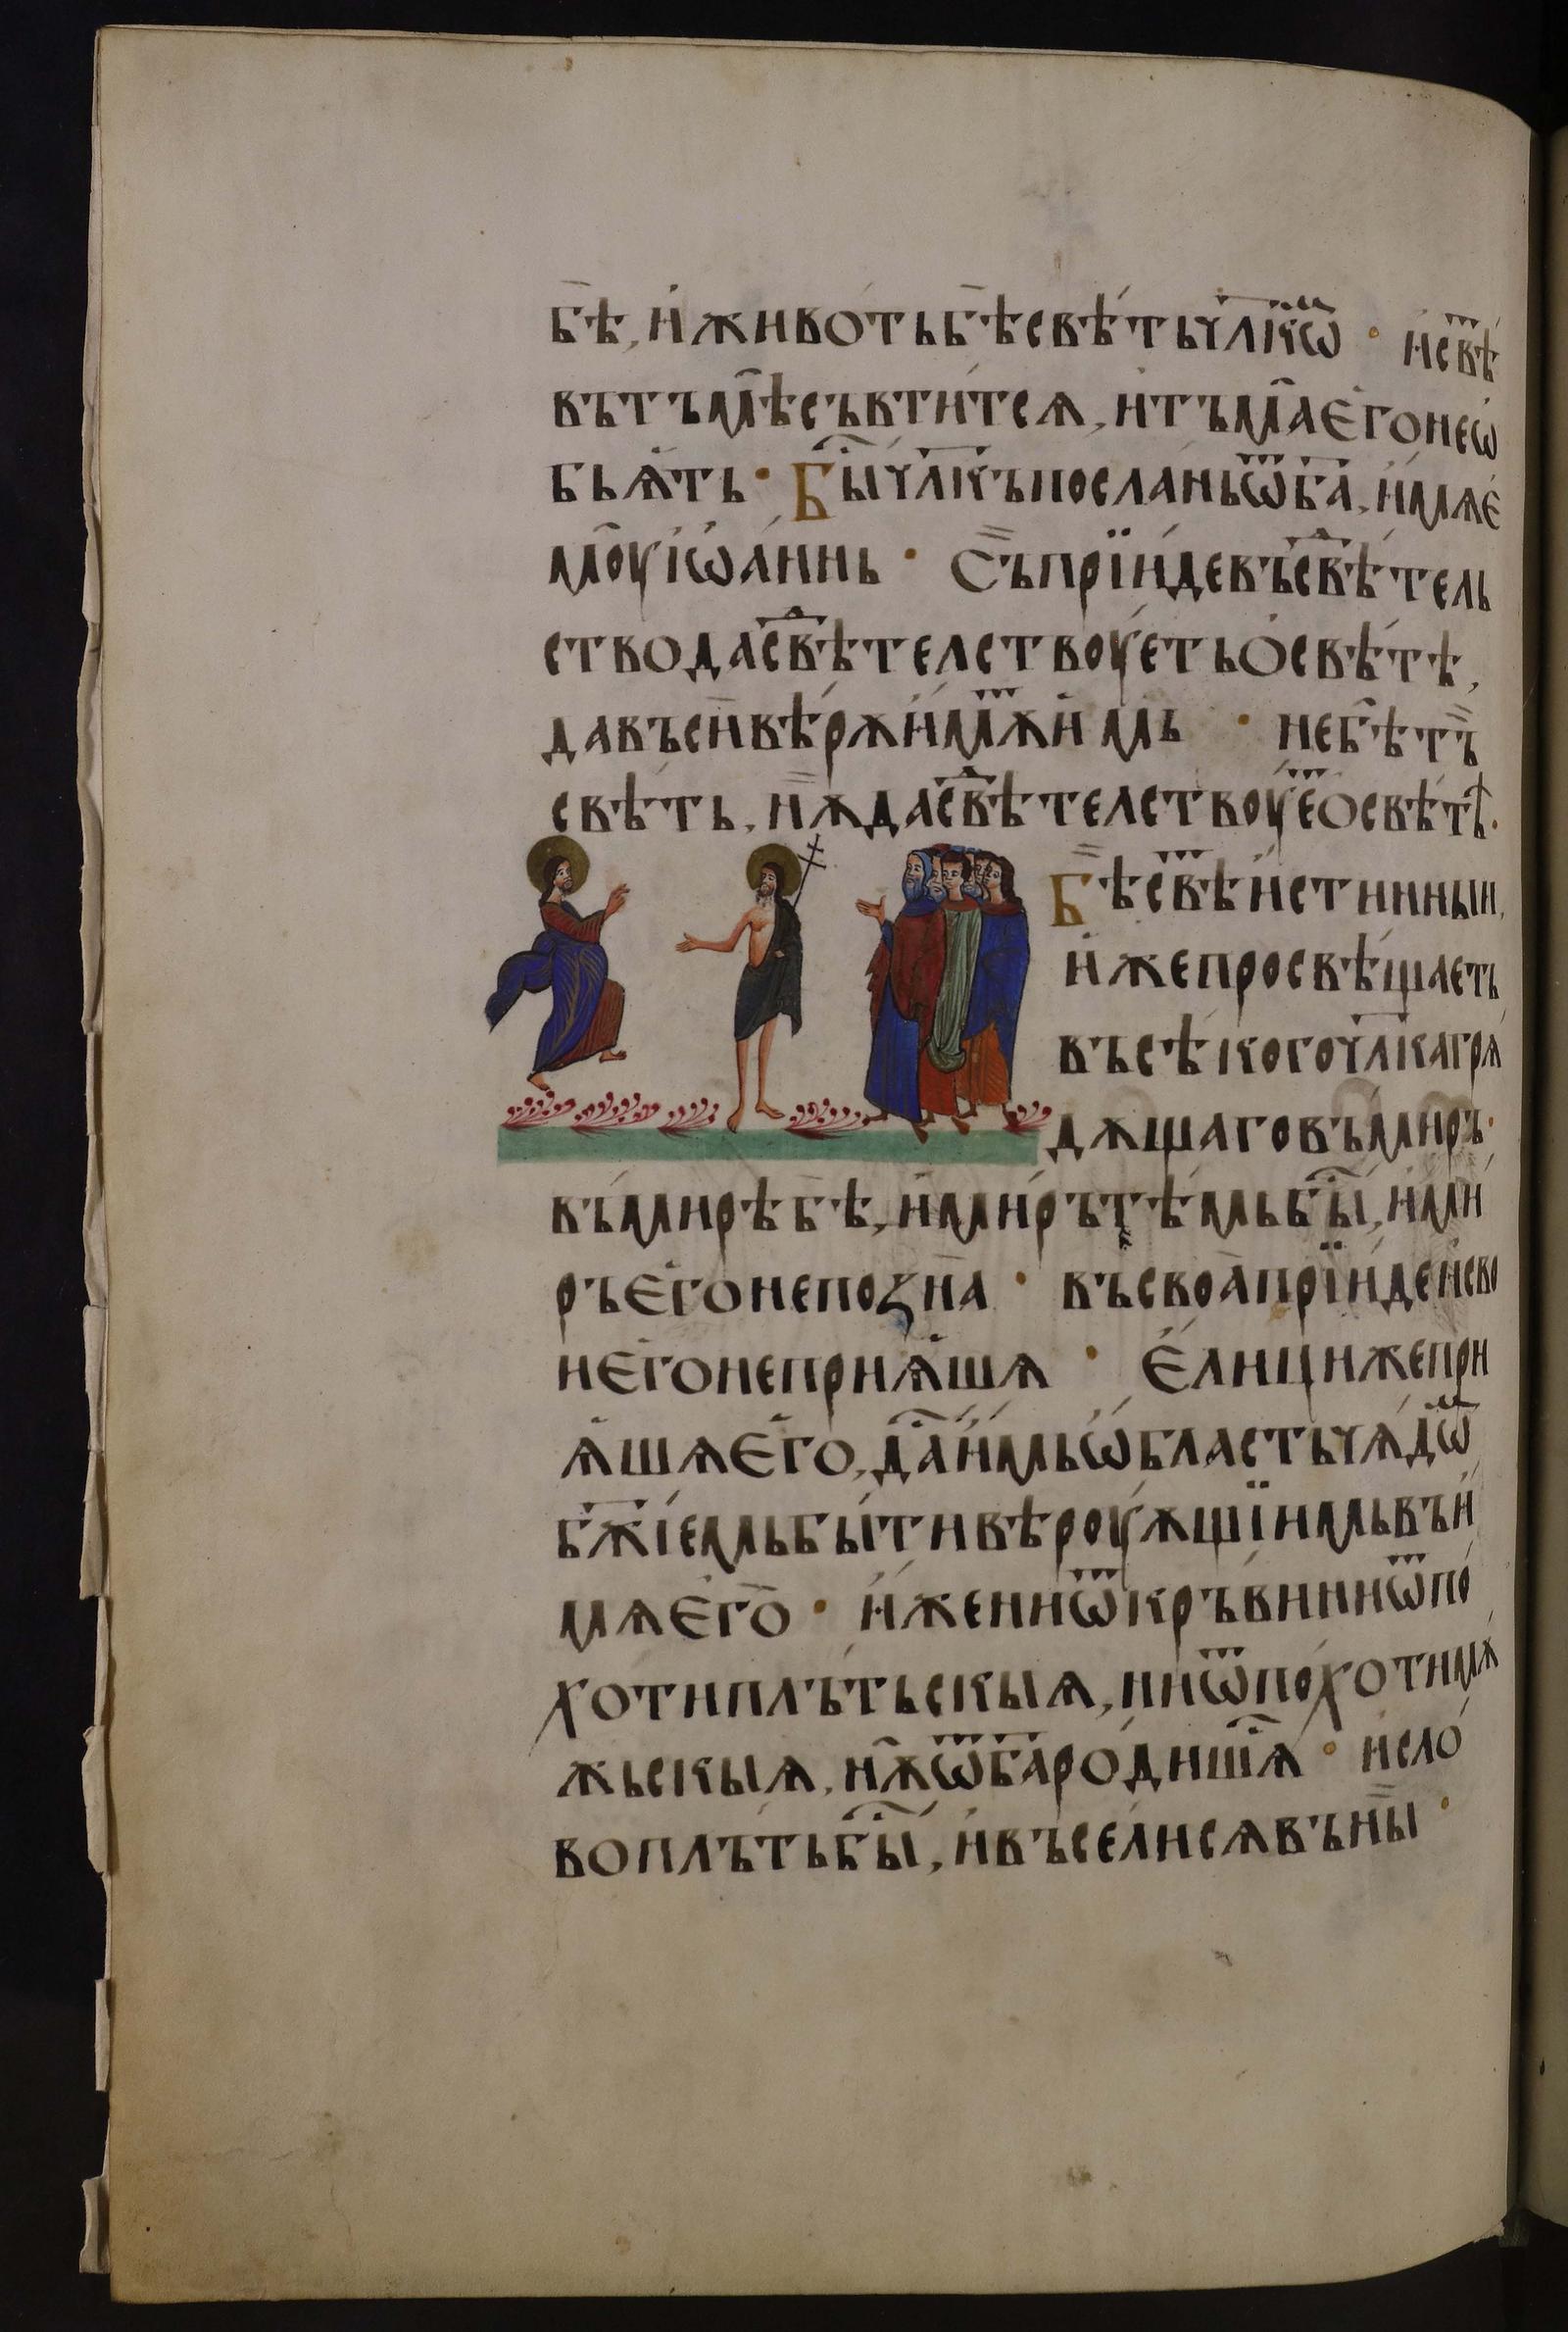 бѣ, и҆ животь бѣ свѣ́ть чл҃кѡ҆м · и҆ свѣ
въ тъмѣ съвтитсѧ, и тъма є҆го не ѡ҆
бьѧ҆ть · Бы҆ чл҃къ посла́нь ѿ ба҃, и҆мѧ є҆
моу іѡ҆а́ннь · Съ прїи́де въ св҃ѣтель
ство да св҃ѣтелствоуеть о҆ свѣ́тѣ,
да въси вѣ́рѫ и҆мѫ́ имь · не бѣ тъ
свѣть, нѫ да св҃ѣтелствоу́е о свѣ́тѣ ·
Бѣ свѣ и҆стинныи,
и҆же просвѣщаеть
въсѣкого чл҃ка грѧ
дѫщаго въ миръ ·
въ мирѣ бѣ, и҆ миръ тѣ́мь бы҆, и҆ ми
ръ є҆го не позна · въ своа прїи́де и҆ сво
и є҆го не приѧ҆шѧ · Є҆лици же при
ѧ҆шѧ є҆го, да́ и҆мь ѡ҆бласть чѧ́дѡ҆м
бж҃іемь бы́ти вѣроу́ѫщїимь въ и҆
мѧ є҆го · и҆же ни ѿ кръви ни ѿ по́
хоти плъ́тьскыѧ, ни ѿ похоти мѫ
жьскыѧ, нѫ ѿ ба҃ роди́шѧ · и҆ сло́
во плъть бы҆, и҆ въсели сѧ въ ны ·